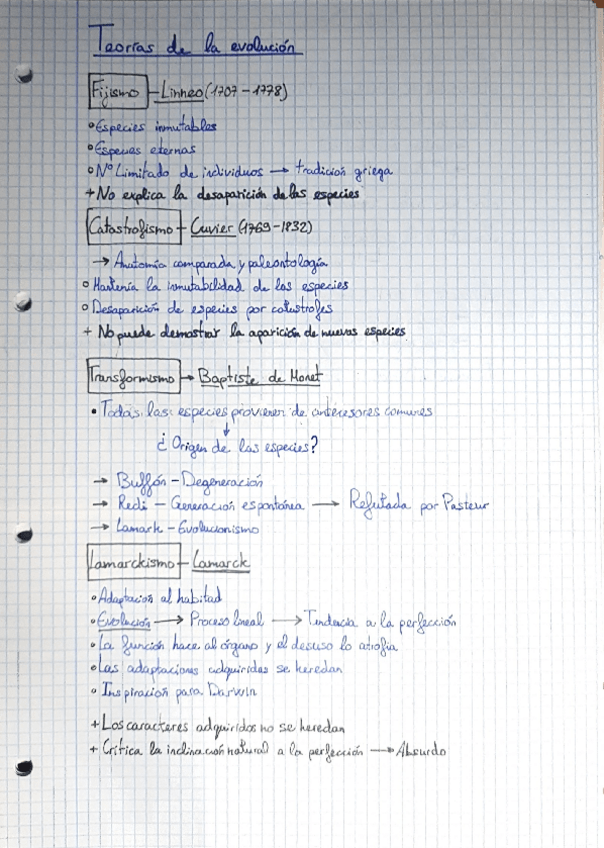 Teorías de la evolución
Fijismo - Linneo (1707-1778)
• Especies inmutables
• Especies eternas
• Nº Limitado de individuos → tradición griega
+ No explica la desaparición de las especies
Catastrofismo - Cuvier (1769-1832)
→ Anatomía comparada y paleontología
• Mantenía la inmutabilidad de las especies
• Desaparición de especies por catástrofes
+ No puede demostrar la aparición de nuevas especies
Transformismo → Baptiste de Monet
• Todas las especies provienen de antecesores comunes
↓
¿Origen de las especies?
→ Buffón - Degeneración
→ Redi - Generación espontánea → Refutada por Pasteur
→ Lamark - Evolucionismo
Lamarckismo - Lamarck
• Adaptación al habitad
• Evolución → Proceso lineal → Tendencia a la perfección
• La función hace al órgano y el desuso lo atrofia
• Las adaptaciones adquiridas se heredan
• Inspiración para Darwin
+ Los caracteres adquiridos no se heredan
+ Crítica la inclinación natural a la perfección → Absurdo